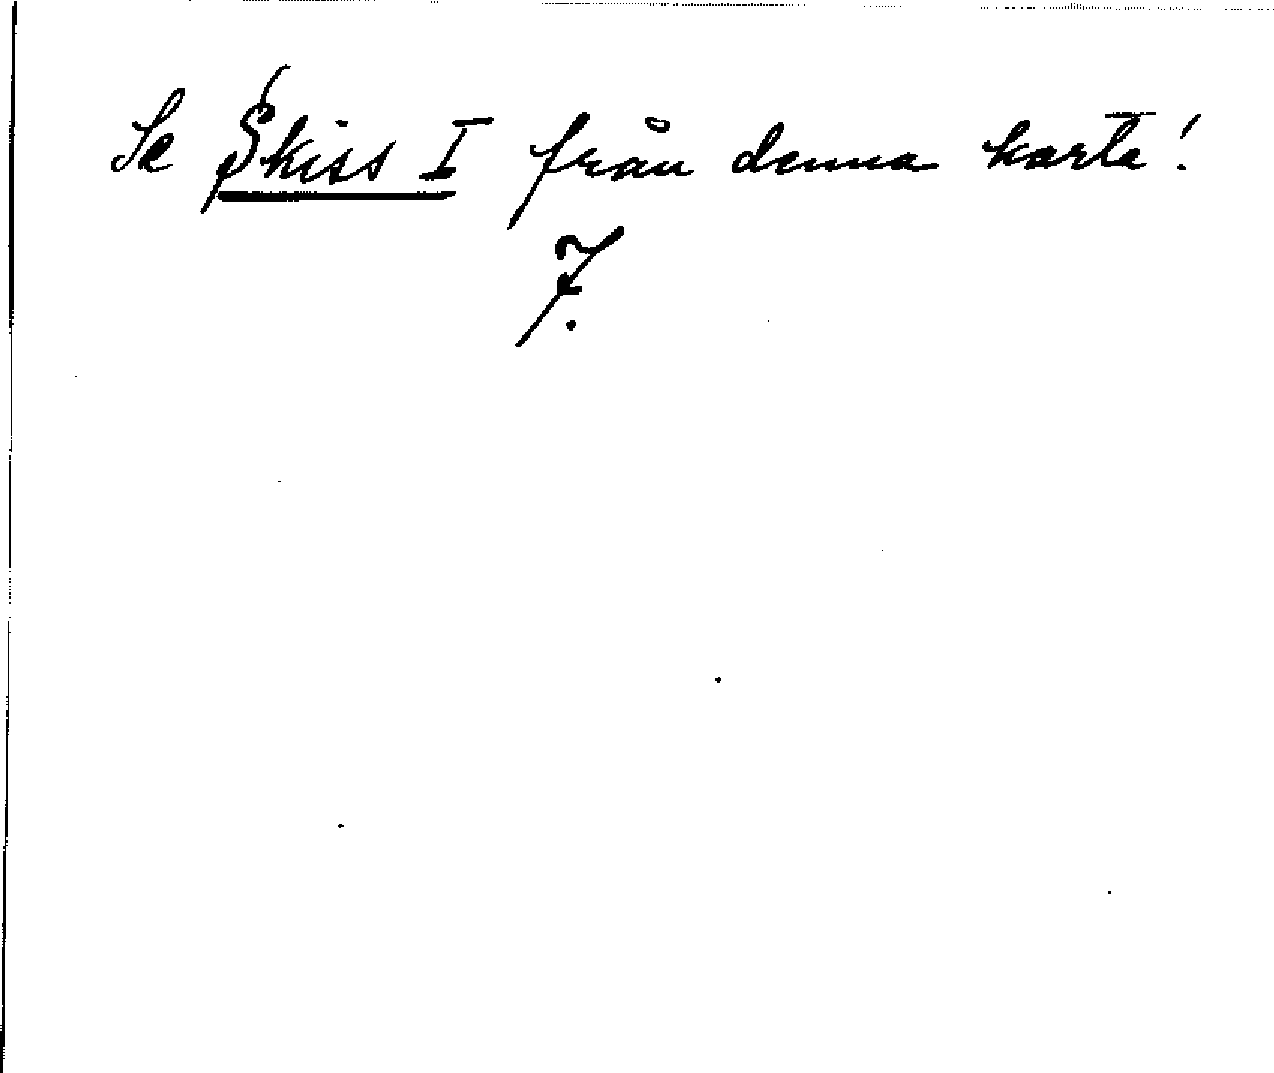 Se Skiss I från denna karta!
7.